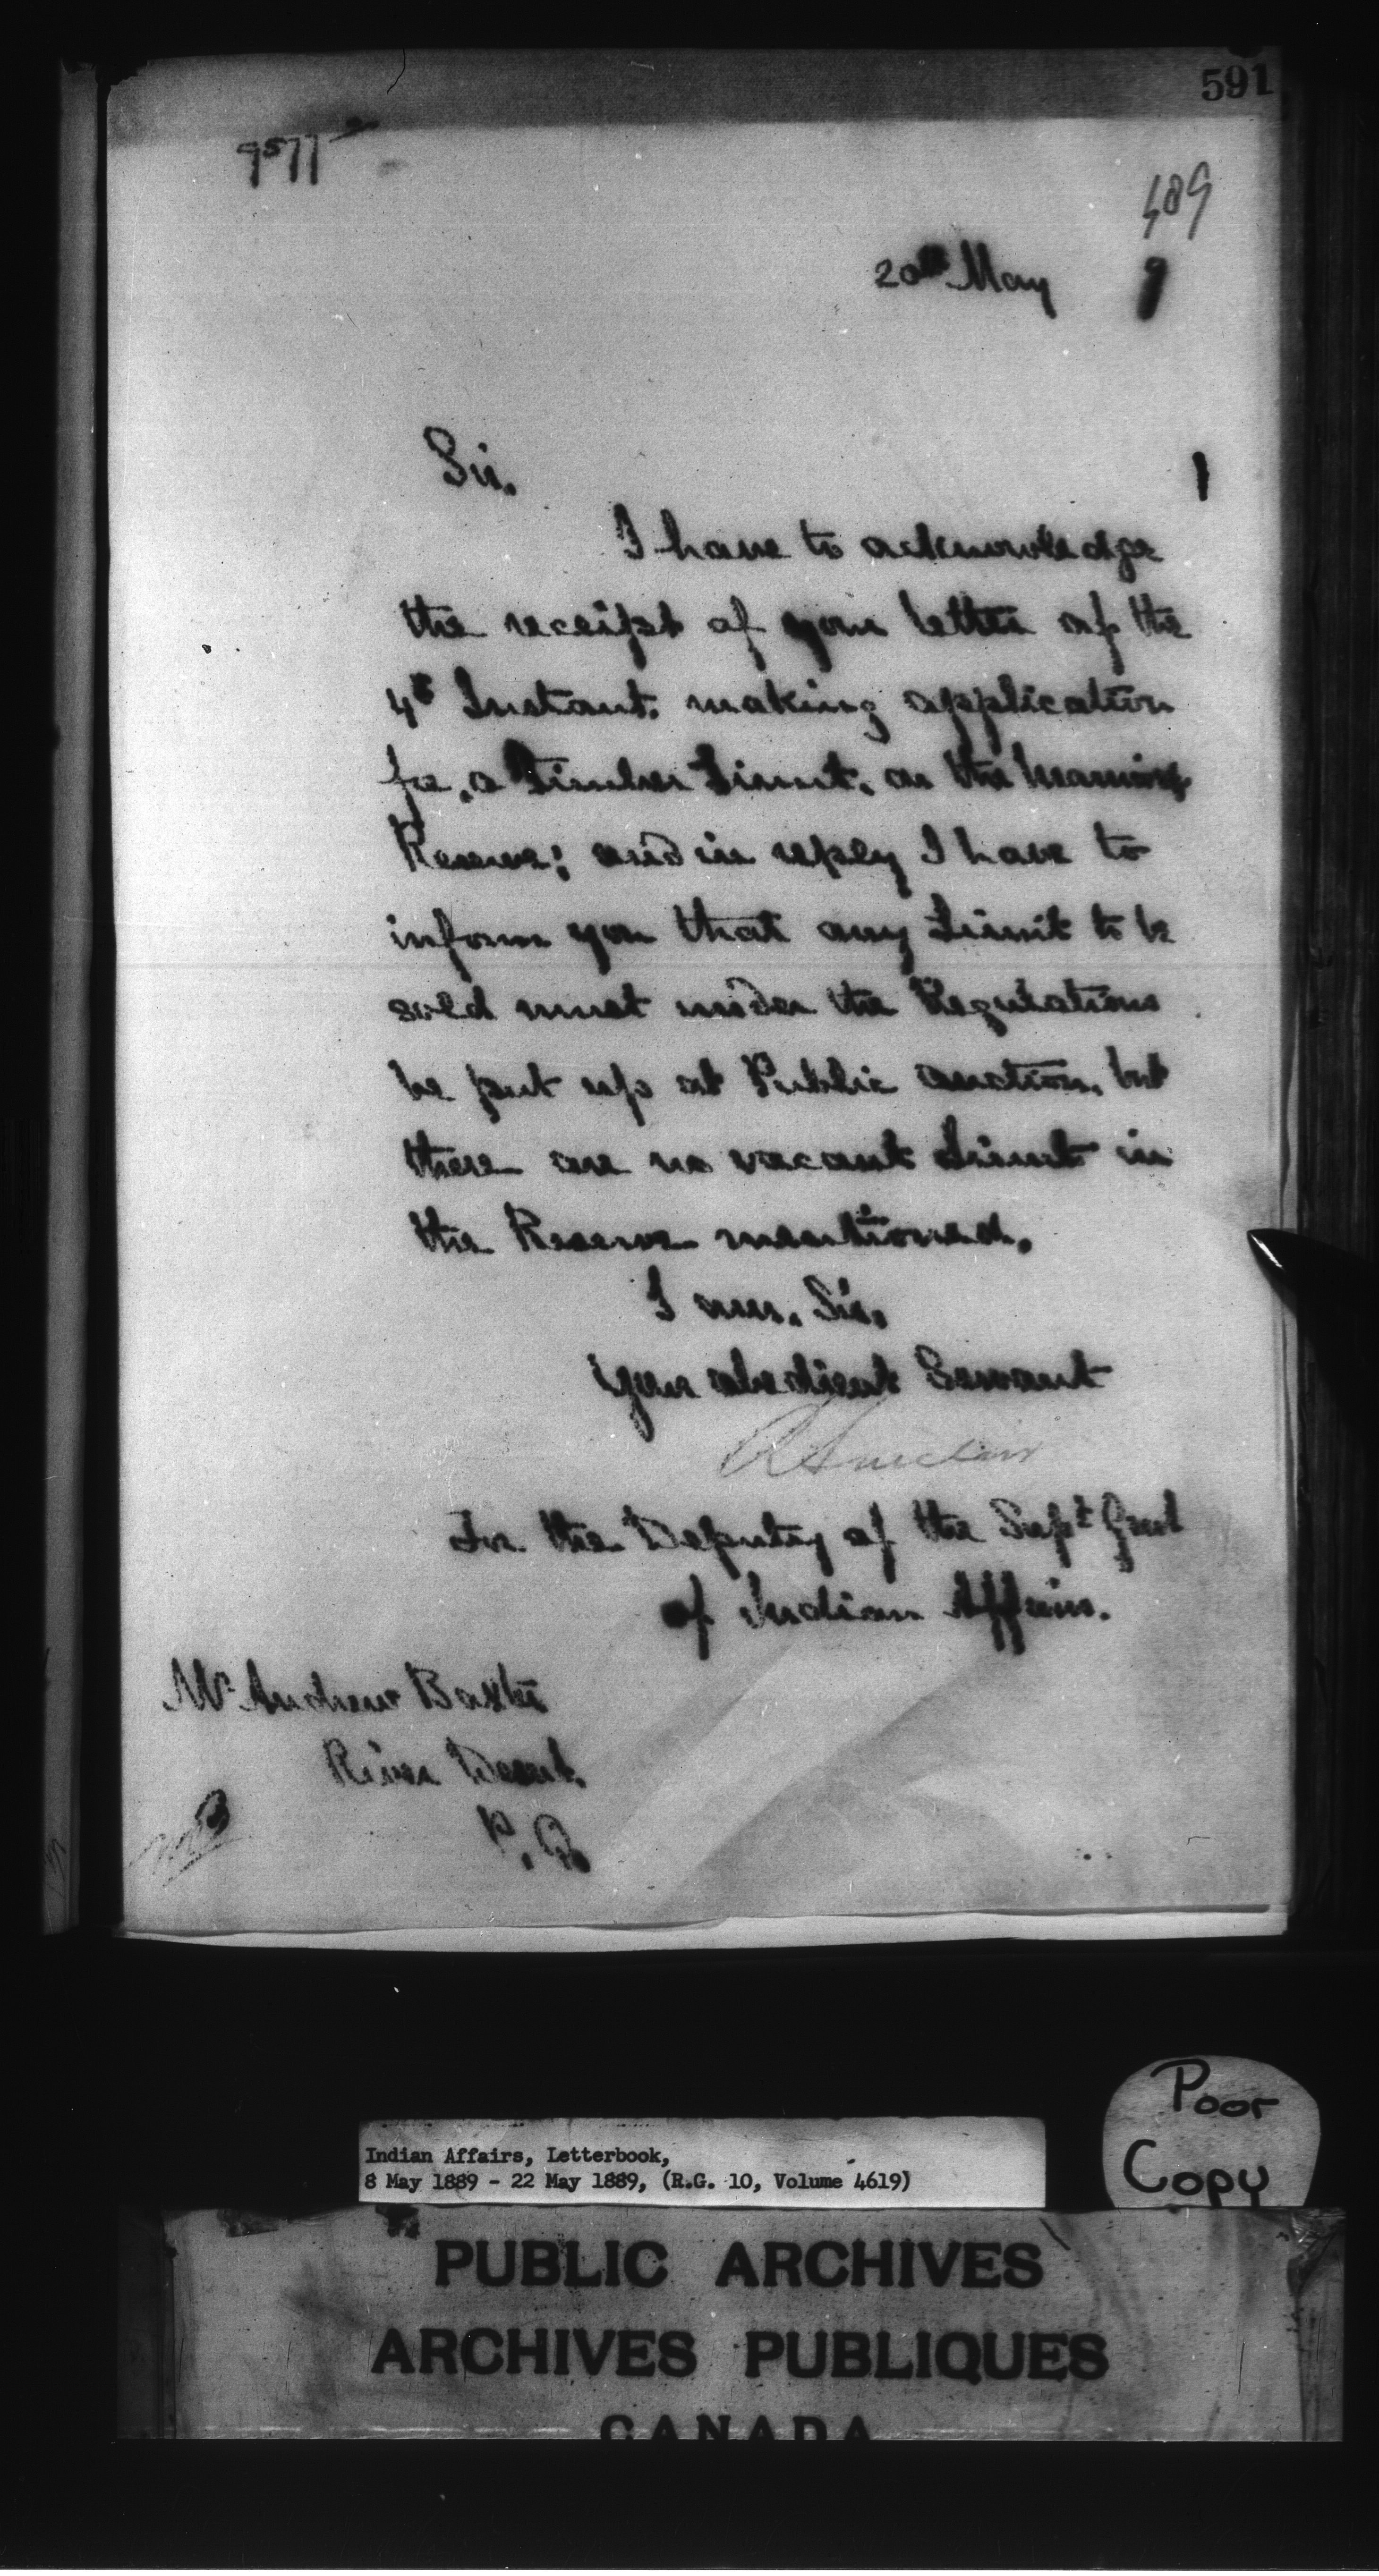 591
9577
489
20th May 9
Sir.
I have to acknowledge
the receipt of your letter of the
4th Instant. making application
for, a Timber Limit, on the
Reserve; and in reply I have to
inform you that any Limit to be
sold must under the Regulations
be put up at Public auction, but
there are no vacant Limits in
the Reserve mentioned.
I am, Sir,
Your obedient Servant
R Sinclair
For the Deputy of the Supt Genl
of Indian Affairs.
Mr Andrew Baxter
River Desert.
P. Q.
Poor
Copy
Indian Affairs, Letterbook,
8 May 1889 - 22 May 1889, (R.G. 10, Volume 4619)
PUBLIC ARCHIVES
ARCHIVES PUBLIQUES
CANADA